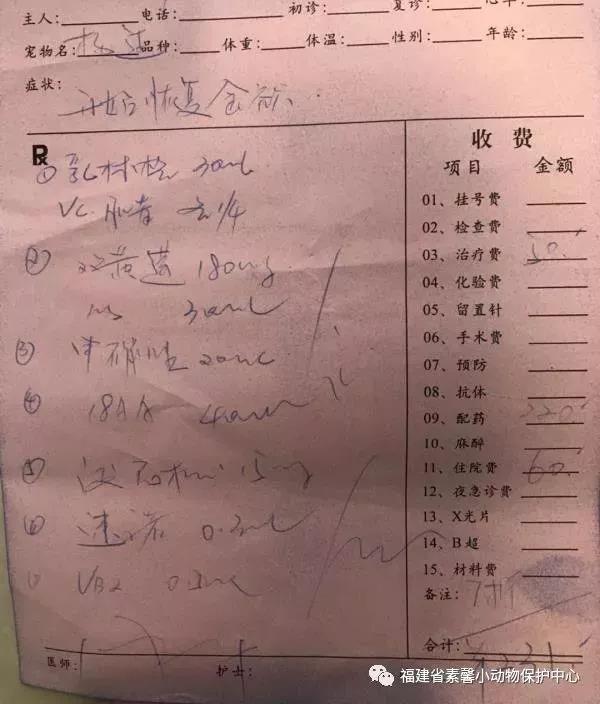 主人: 电话: 初诊: 复诊: 心率:
宠物名: 品种: 体重: 体温: 性别: 年龄:
症状:
开始恢复食欲.
R 收费
项目 金额
① 乳林格 30ml
VC. 肌苷 各1/4
② 双黄莲 180mg
NS 30ml
③ 甲硝唑 20ml
④ 18AA 40ml
15mg
速诺 0.3ml
VB2
01、挂号费
02、检查费
03、治疗费 50.
04、化验费
05、留置针
06、手术费
07、预防
08、抗体
09、配药 220
10、麻醉
11、住院费 60.
12、夜急诊费
13、X光片
14、B超
15、材料费
备注: 7折
合计: ¥231
医师: 护士:
福建省素馨小动物保护中心